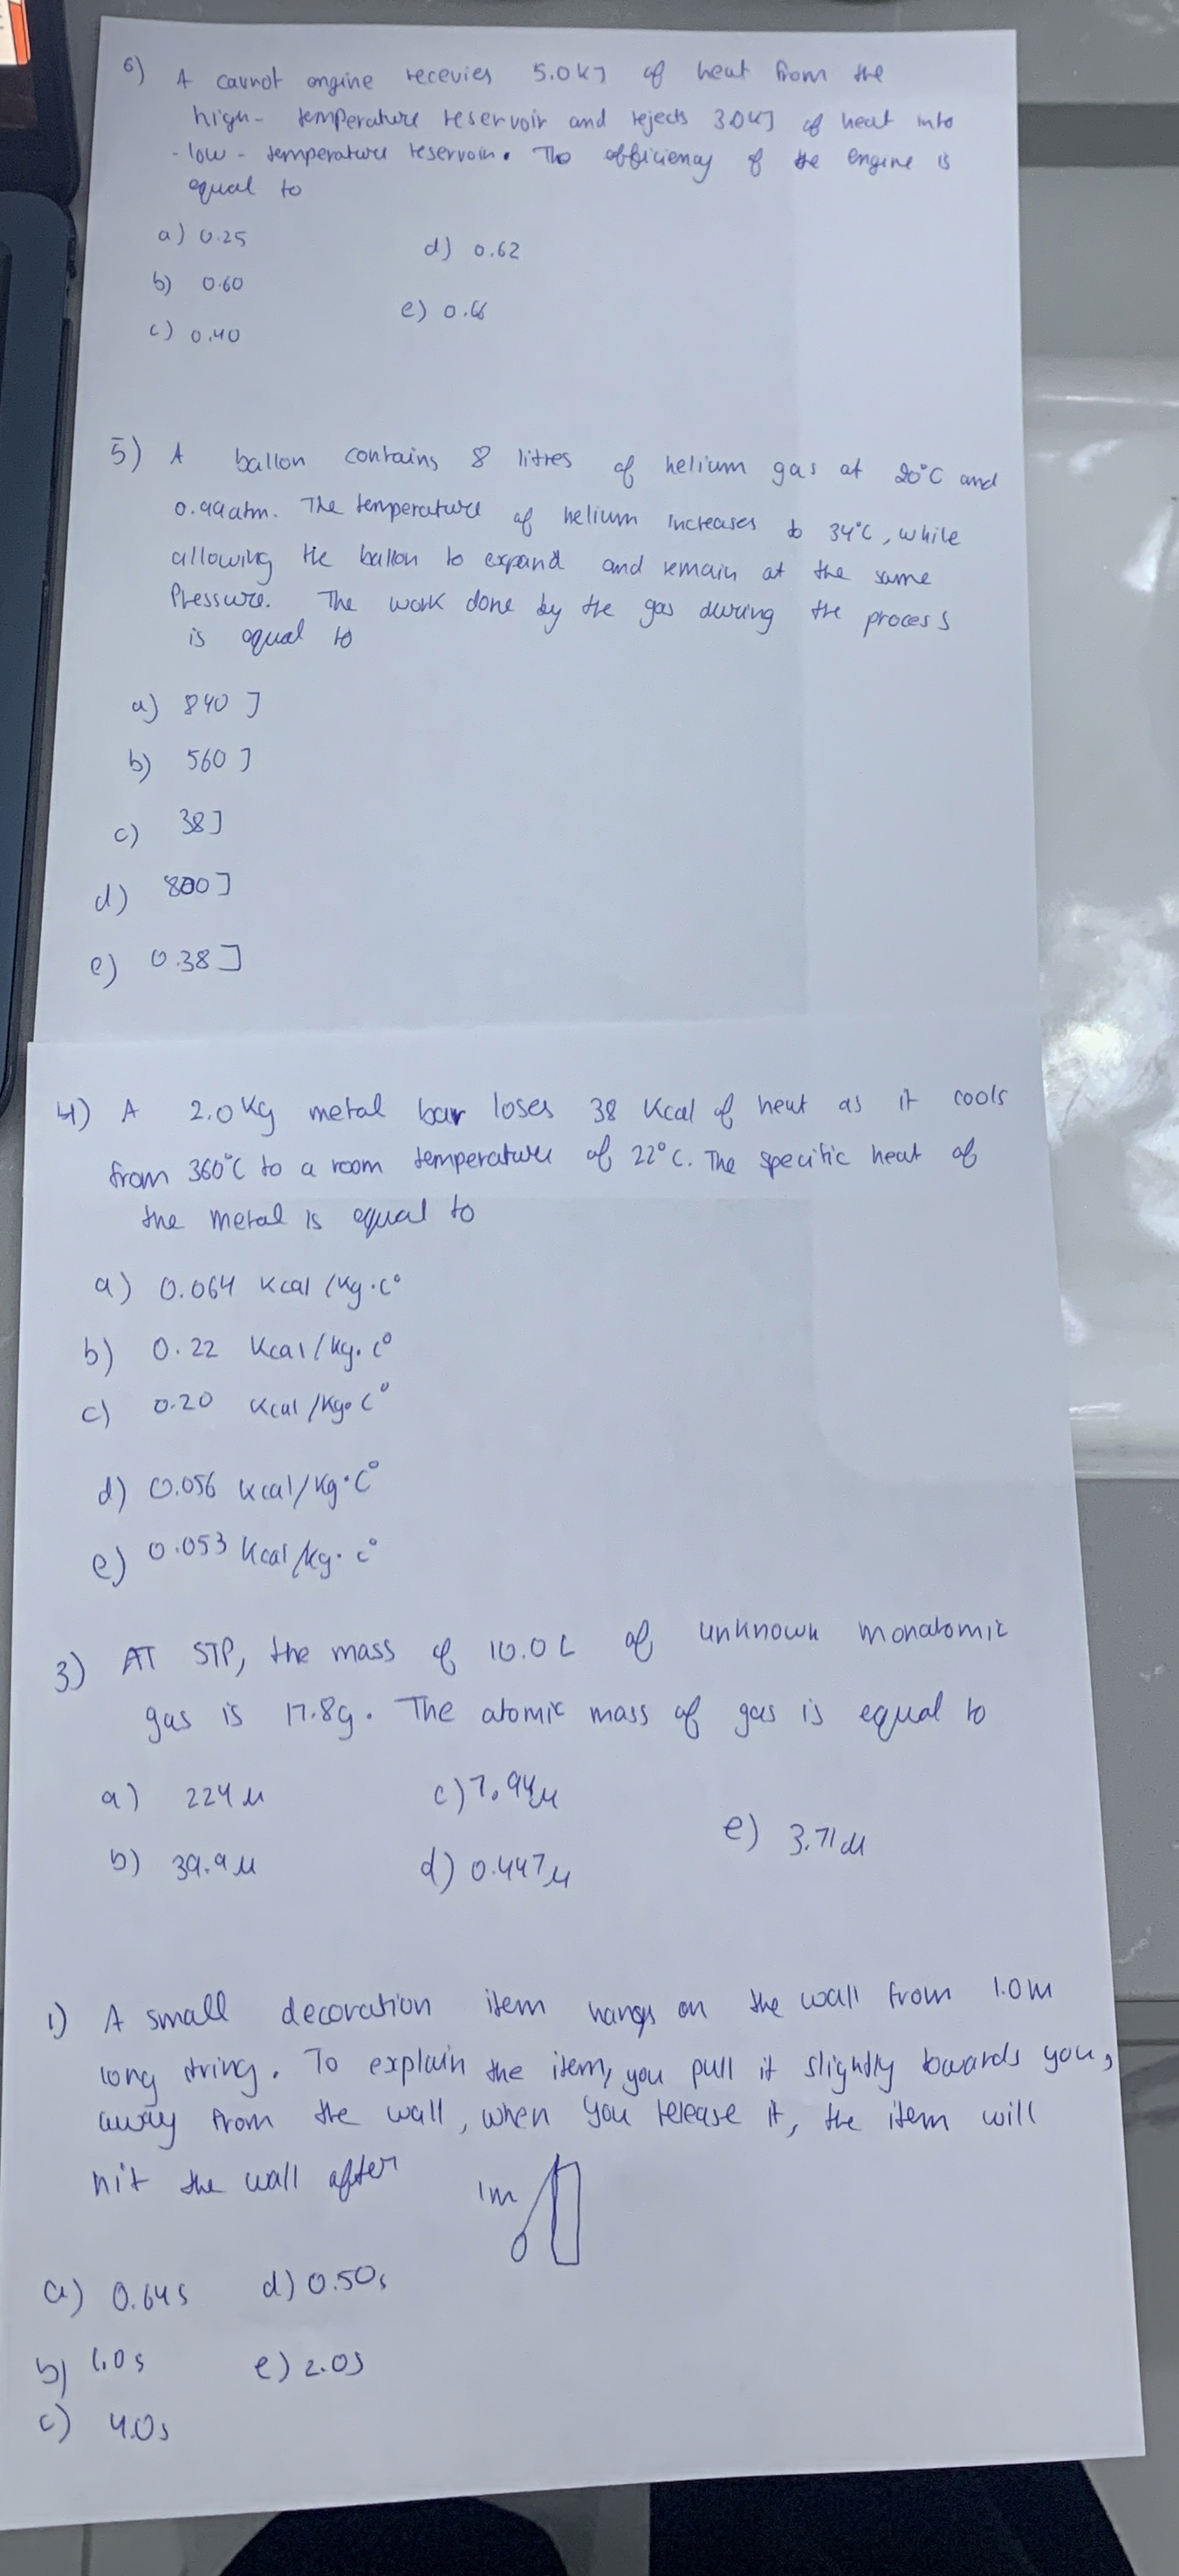 6) A carnot engine recevies 5.0KJ of heat from the
high- temperature reservoir and rejects 3.0KJ of heat into
- low - temperature reservoir. The efficiency of the engine is
equal to
a) 0.25
d) 0.62
b) 0.60
e) 0.66
c) 0.40
5) A ballon contains 8 litres of helium gas at 20°C and
0.99atm. The temperature of helium increases to 34°C, while
allowing the ballon to expand and remain at the same
Pressure. The work done by the gas during the process
is equal to
a) 840 J
b) 560 J
c) 38J
d) 800J
e) 0.38J
4) A 2.0Kg metal bar loses 38 Kcal of heat as it cools
from 360°C to a room temperature of 22°C. The specific heat of
the metal is equal to
a) 0.064 Kcal/Kg.C°
b) 0.22 Kcal/Kg.C°
c) 0.20 Kcal/Kg.C°
d) 0.056 Kcal/Kg.C°
e) 0.053 Kcal/Kg.C°
3) AT STP, the mass of 10.0L of unknown monatomic
gas is 17.8g. The atomic mass of gas is equal to
a) 224u c) 7.94u
e) 3.71u
b) 39.9u d) 0.447u
1) A small decoration item hangs on the wall from 1.0m
long string. To explain the item, you pull it slightly towards you,
away from the wall, when you release it, the item will
hit the wall after
1m
a) 0.64s d) 0.50s
b) 1.0s e) 2.0s
c) 4.0s